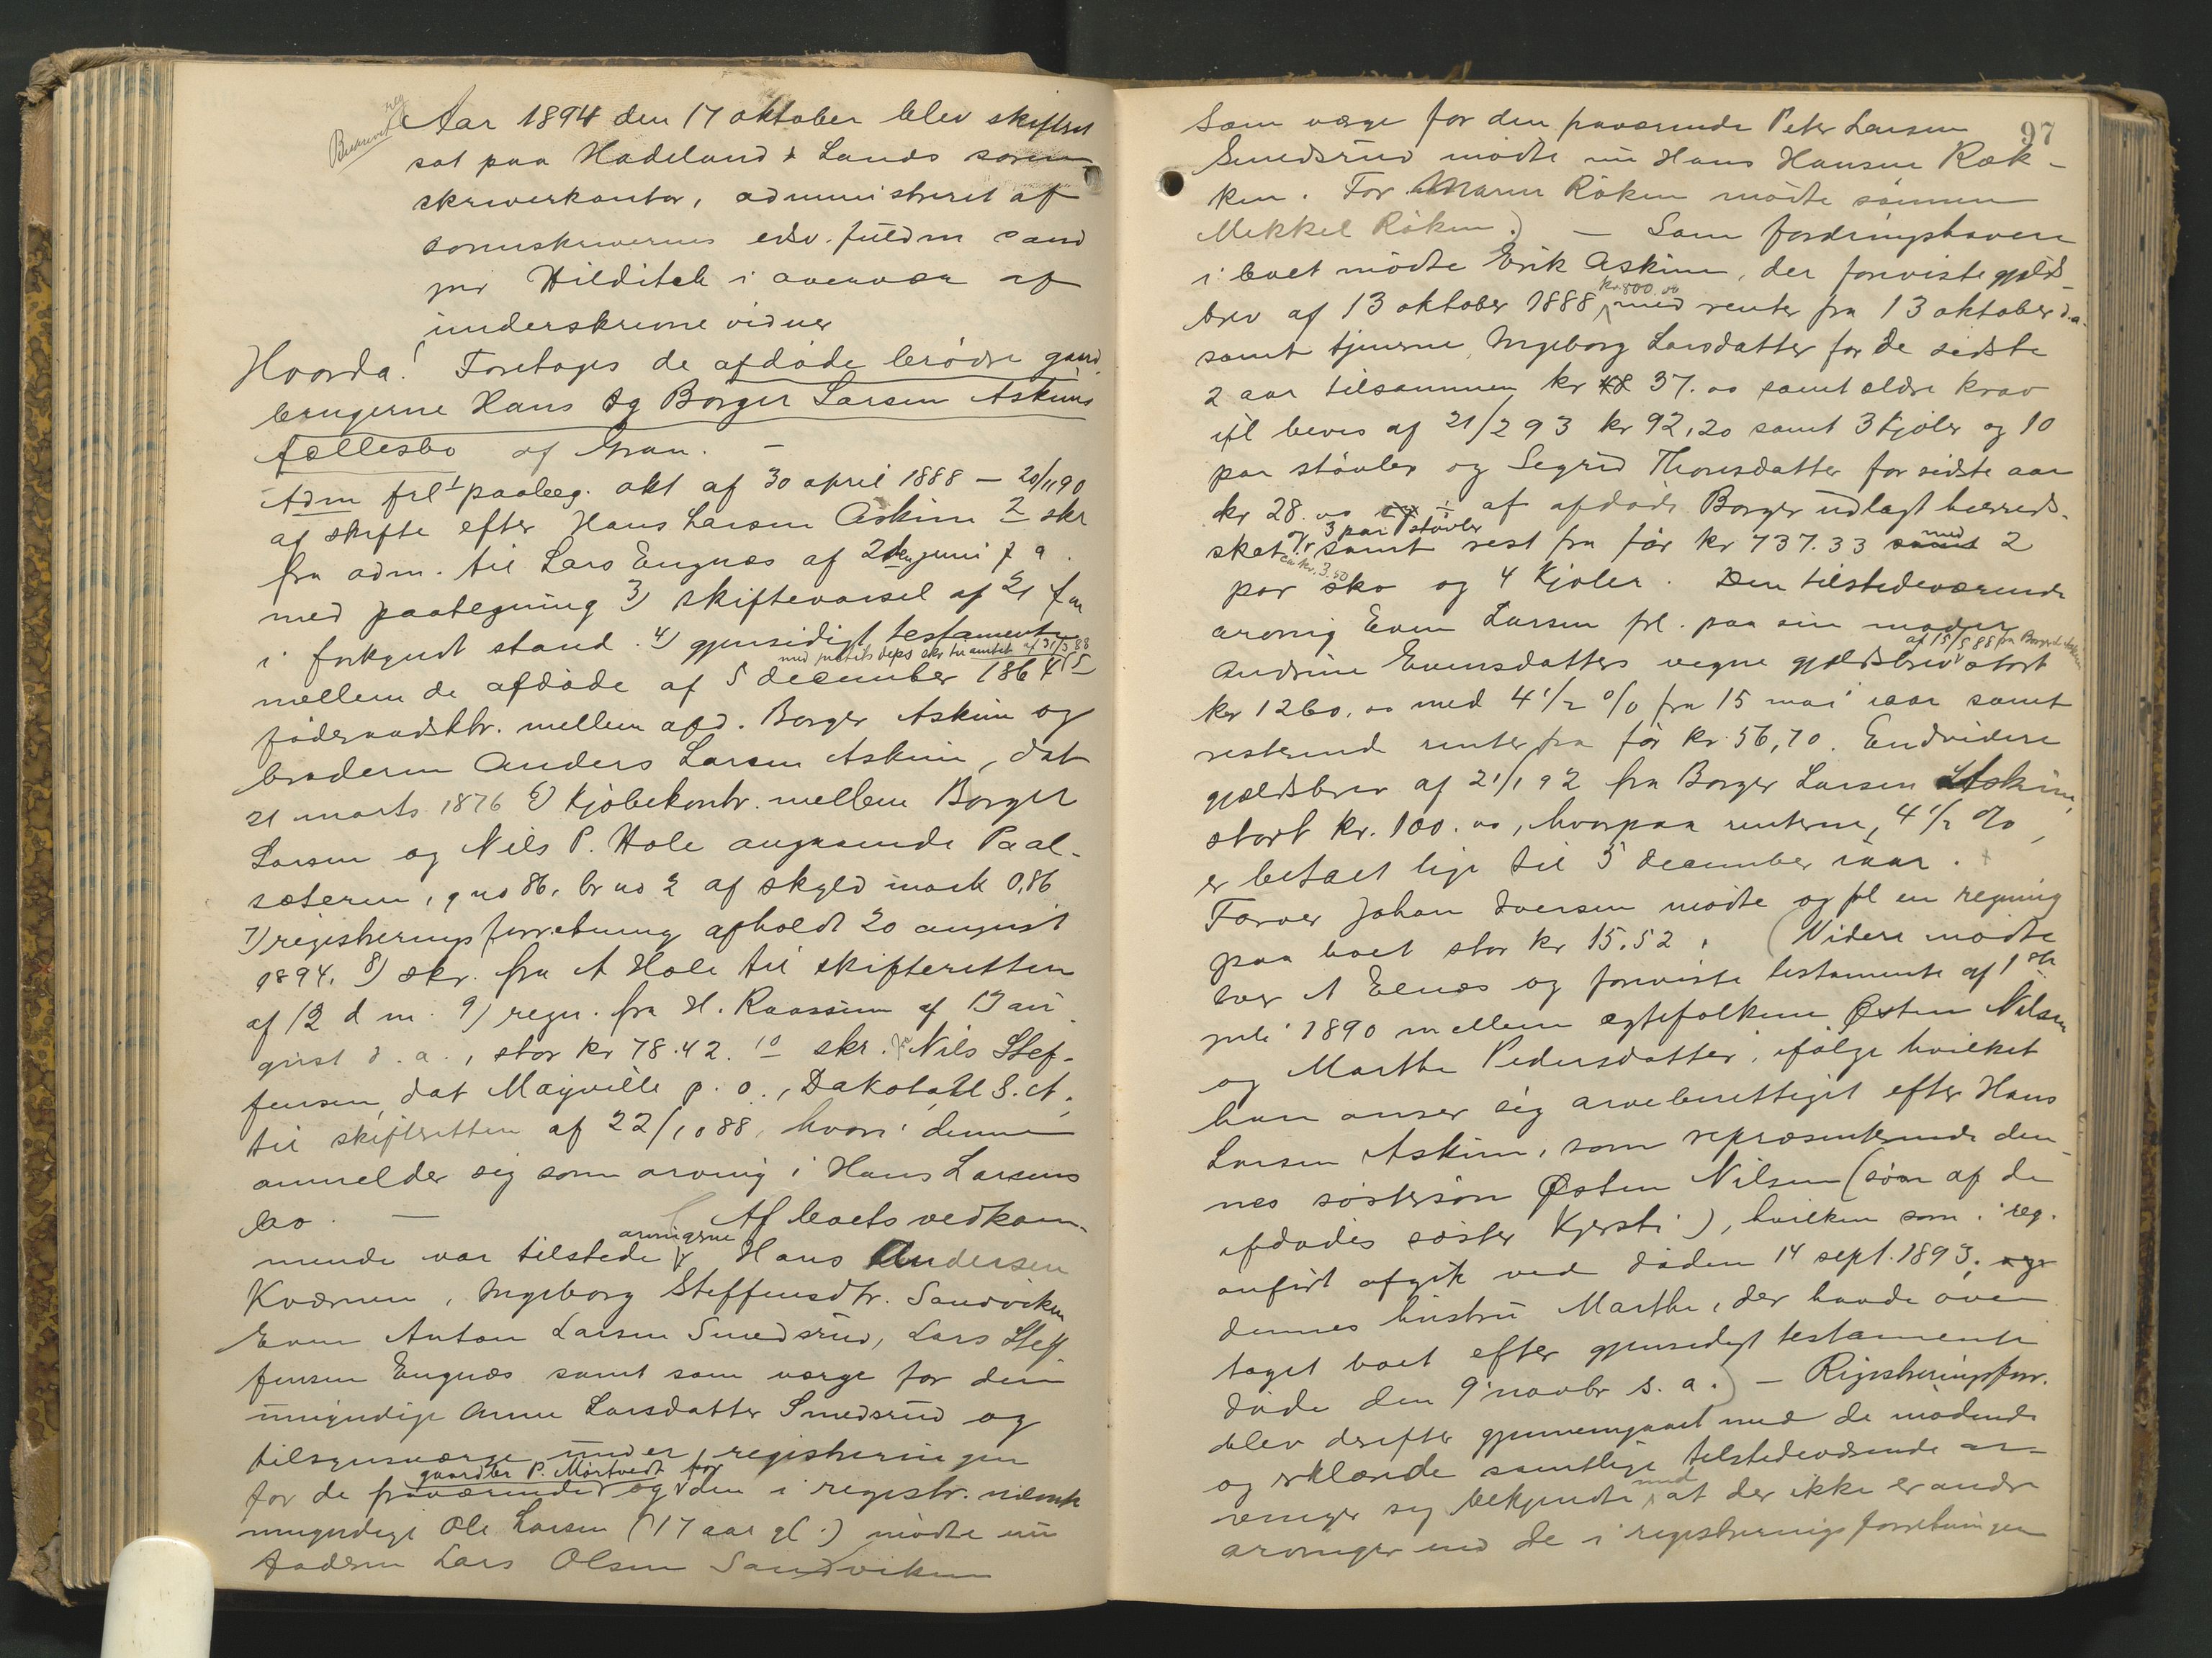 Aar 1894 den 17 oktober blev skifteret
sat paa Hadeland & Lands soren
skriverkontor, administreret af
sorenskriverens edsv. fuldm cand
jur Hilditch i overvær af
underskrevne vidner
Hvorda! Foretoges de afdøde brødre gaard
brugerne Hans og Borger Larsen Askims
fællesbo af Gran. —
Adm frl 1 paabeg. akt af 30 april 1888 — 20/11 90
af skifte efter Hans Larsen Askim 2 skr
fra adm. til Lars Engnæs af 2den juni f a.
med paategning 3) skiftevarsel af 21 f m
i forkyndt stand. 4) gjensidigt testamente
med justits deps skr til amtet af 31/3 88
mellem de afdøde af 5 december 1864 5
føderaadsktr. mellem afd. Borger Askim og
broderen Anders Larsen Askim, dat
21 marts 1876 6) Kjøbekontr. mellem Borger
Larsen og Nils P. Hole angaaende Paal-
sæteren, g no 86, br no 2 af skyld mark 0,86
7) registreringsforretning afholdt 20 august
1894. 8) skr. fra A Hole til skifteretten
af 12 d m. 9) regn. fra H. Raassum af 17 au
gust d. a., stor kr 78.42. 10 skr. fra Nils Stef-
fensen, dat Mayville p. o., Dakota U. S. A.,
til skifteretten af 22/10 88, hvori denne
anmelder sig som arving i Hans Larsens
bo. — Af boets vedkom-
mende var tilstede arvingerne Hans Andersen
Kværnen, Ingeborg Steffensdtr. Sandviken
Even Anton Larsen Smedsrud, Lars Stef
fensen Engnæs samt som værge for den
umyndige Anne Larsdatter Smedsrud og
tilsynsværge under registreringen
for de fraværende gaardbr P. Mørtvedt for og den i registr. nævnte
umyndige Ole Larsen (17 aar gl.) mødte nu
faderen Lars Olsen Sandviken
97
Som værge for den fraværende Peter Larsen
Smedsrud mødte nu Hans Hansen Røk-
ken. For Maren Røken mødte sønnen
Mikkel Røken.) — Som fordringshavere
i boet mødte Erik Askim, der foreviste gjelds-
brev af 13 oktober 1888 kr. 800.00 med renter fra 13 oktober d.a.
samt tjenerne Ingeborg Larsdatter for de sidste
2 aar tilsammen kr 37.00 samt ældre krav
ifl bevis af 21/2 93 kr 92,20 samt 3 kjoler og 10
par støvler og Sigrid Thorsdatter for sidste aar
kr 28.00 ÷ af afdøde Borger udlagt herreds-
skat ca kr. 3.50 og 3 par støvler samt rest fra før kr 737.33 med 2
par sko og 4 Kjoler. Den tilstedeværende
arving Even Larsen frl. paa sin moder
Andrine Evensdatters vegne gjældsbrev af 15/5 88 fra Borger Askim stort
kr 1260.00 med 4 1/2 % fra 15 mai iaar samt
resterende renter fra før kr 56,70. Endvidere
gjældsbrev af 21/1 92 fra Borger Larsen Askim,
stort kr. 100.00, hvorpaa renterne, 4 1/2 %,
er betalt lige til 5 december iaar.
Farver Johan Iversen mødte og frl en regning
paa boet stor kr 15.52. (Videre mødte
Iver A Elnæs og foreviste testamente af 1ste
juli 1890 mellem ægtefolkene Østen Nilsen
og Marthe Pedersdatter, ifølge hvilket
han anser sig arveberettiget efter Hans
Larsen Askim, som repræsenterende den-
nes søstersøn Østen Nilsen (søn af de
afdødes søster Kjersti), hvilken som i reg.
anført afgik ved døden 14 sept. 1893.
dennes hustru Marthe, der havde over
taget boet efter gjensidigt testamente
døde den 9 novbr s. a.) — Registreringsforr.
blev derefter gjennemgaaet med de mødende
og erklærede samtlige tilstedeværende ar-
vinger sig bekjendte med at der ikke er andre
arvinger end de i registreringsforretningen